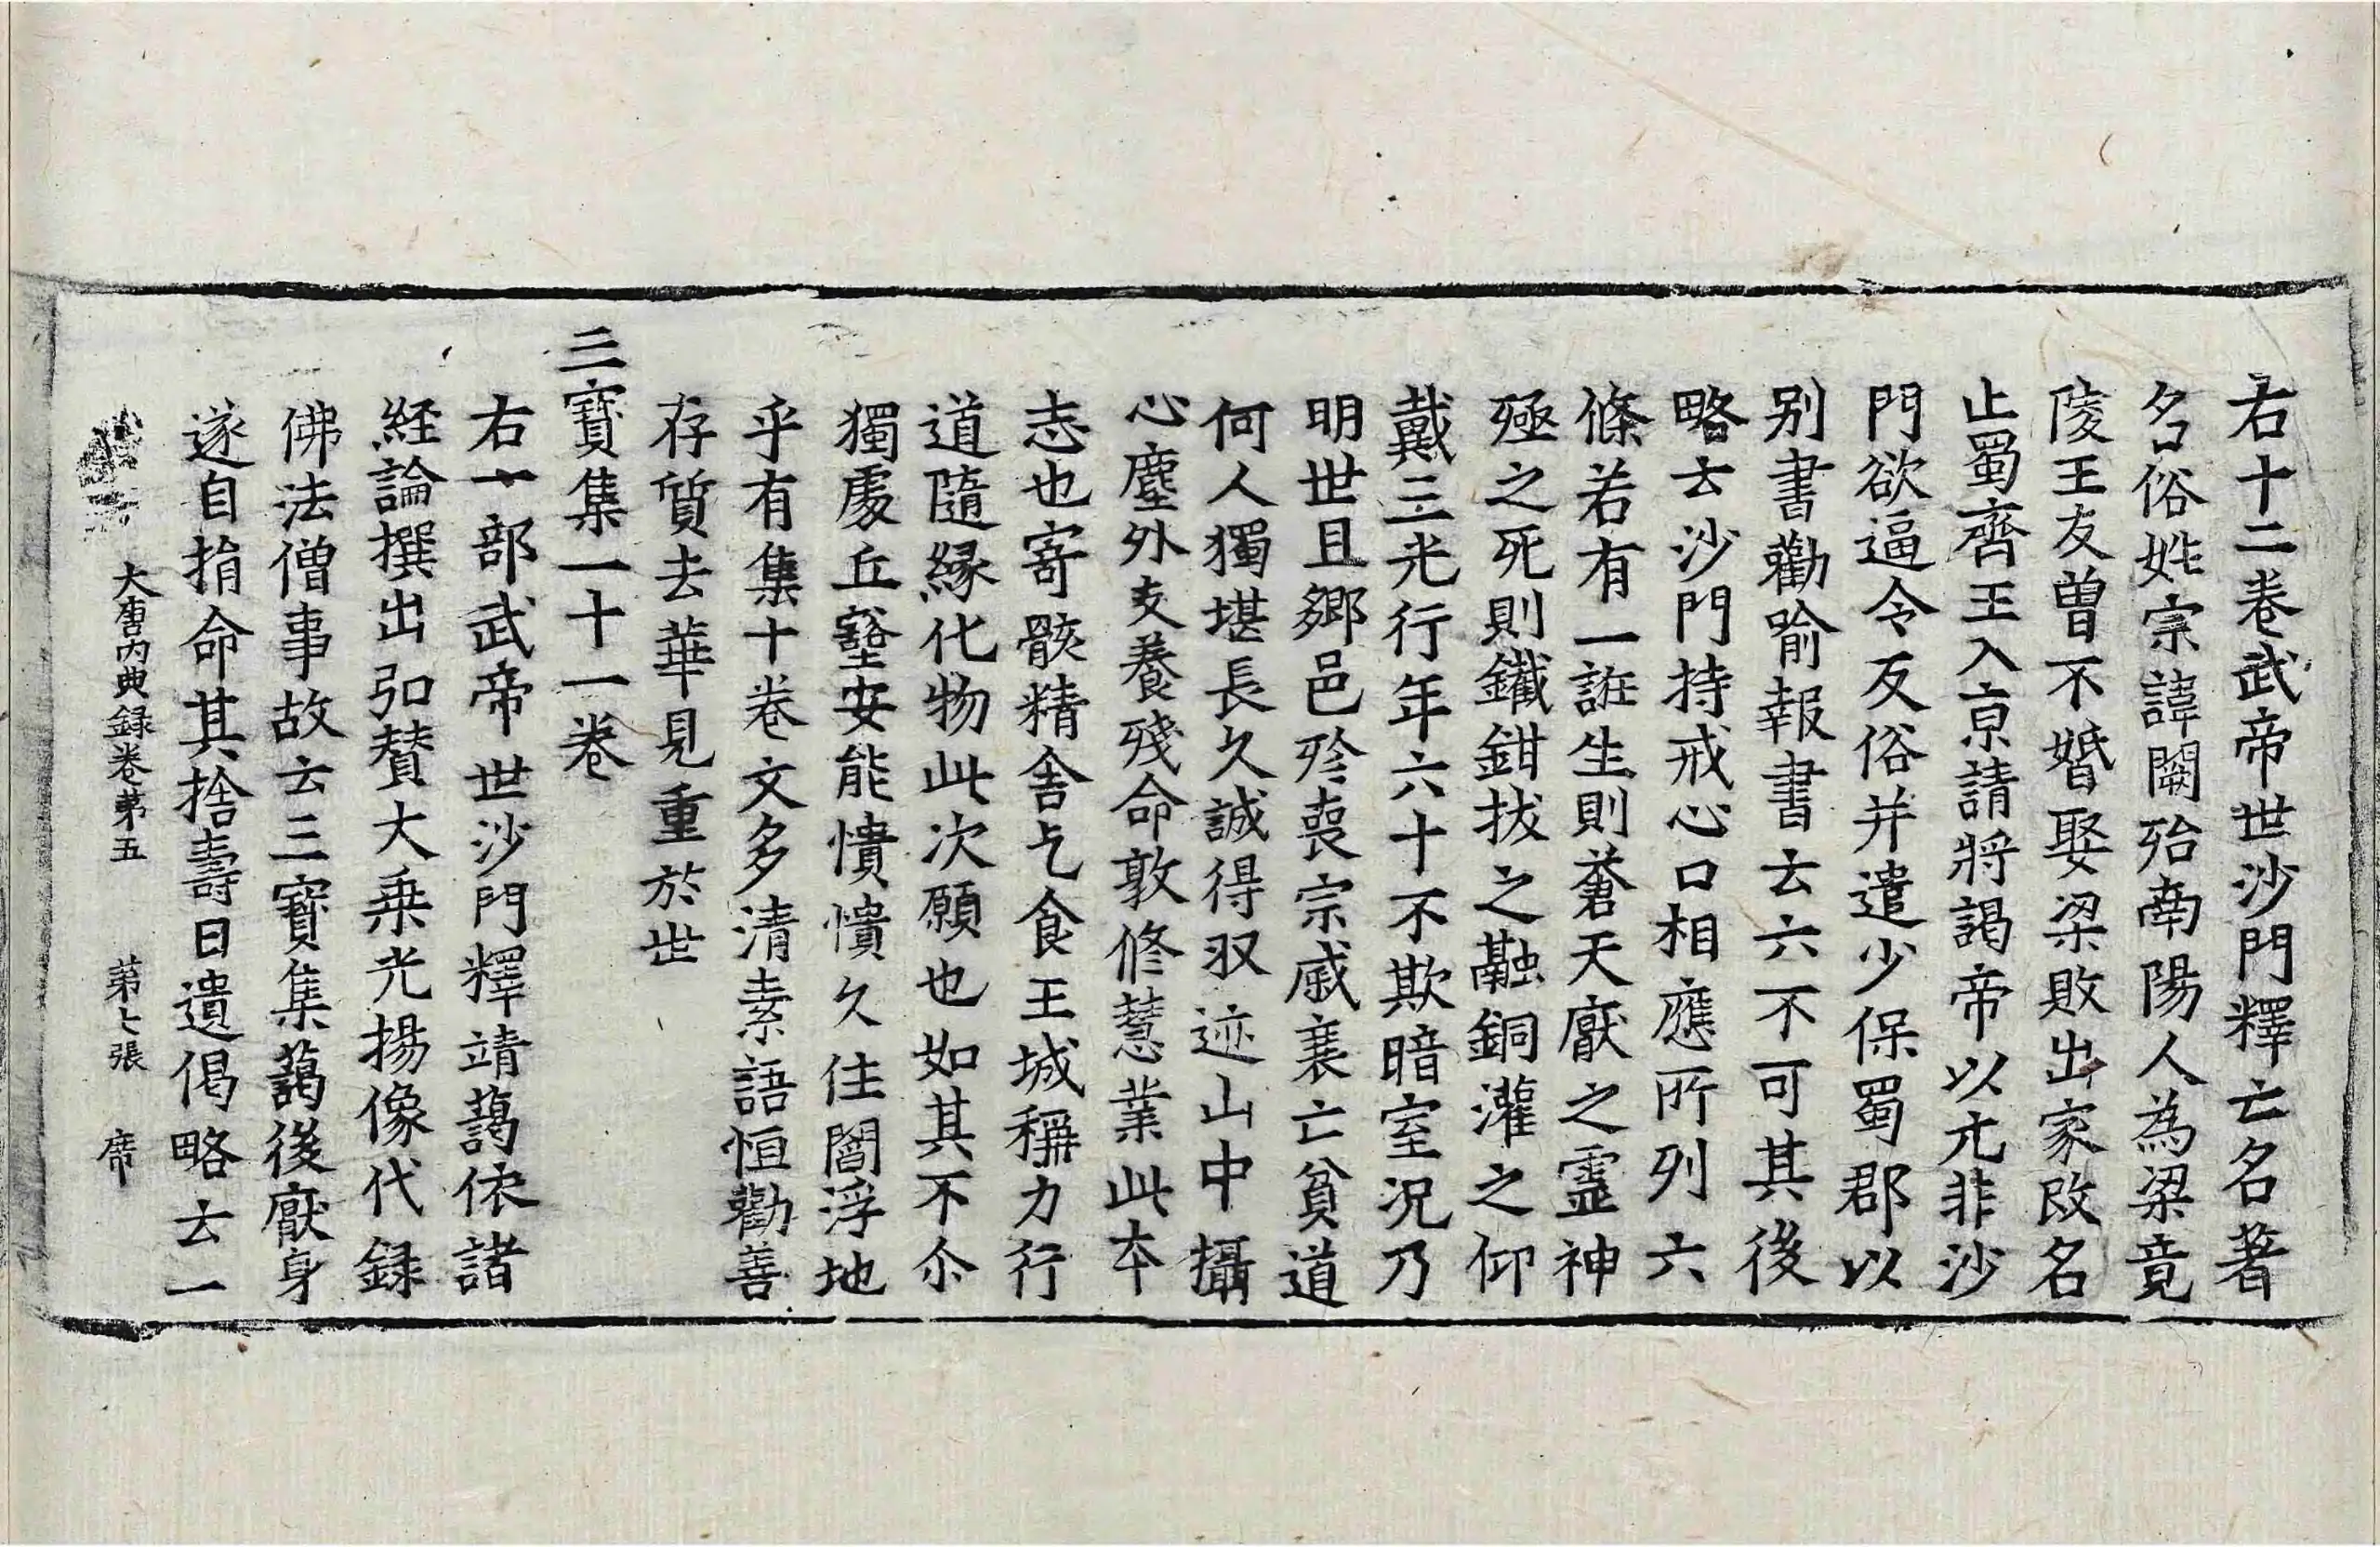 右十二卷武帝世沙門釋亡名著
名俗姓宗諱闕殆南陽人為梁竟
陵王友曽不婚娶梁敗出家改名
止蜀齊王入京請將謁帝以元非沙
門欲逼令反俗并遣少保蜀郡以
别書勸喻報書云六不可其後
略云沙門持戒心口相應所列六
條若有一誑生則蒼天厭之靈神
殛之死則鐵鉗拔之融銅灌之仰
戴三光行年六十不欺暗室况乃
明世且鄉邑殄喪宗戚衰亡貧道
何人獨堪長久誠得收迹山中攝
心塵外支養殘命敦修慧業此本
志也寄骸精舍乞食王城稱力行
道隨緣化物此次願也如其不尒
獨處丘壑安能憒憒久住閻浮地
乎有集十卷文多清素語恒勸善
存質去華見重於世
三寶集一十一卷
右一部武帝世沙門釋靖藹依諸
経論撰出弘賛大乗光揚像代録
佛法僧事故云三寶集藹後厭身
遂自捐命其捨壽日遺偈略云一
大唐内典録卷第五 第七張 席